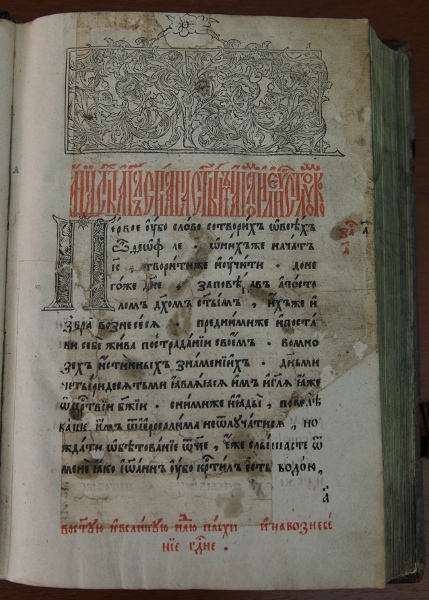 Первое оубо слово сотворихъ ѡ всѣхъ
Ѳеѡф ле . ѡ нихъже начатъ
Іс҃ творитиже и оучити . доне
гоже дн҃е , заповѣ авъ ап҃осто
ломъ дх҃омъ ст҃ымъ , ихъже и
збра вознесеся . пред нимиже и поста
ви себе жива по страданіи своемъ . во мно
зехъ истинныхъ знаменіихъ . дн҃ьми
четыридесятьми ꙗвляꙗся имъ и гл҃я ꙗже
ѡ црс҃твіи бж҃іи . с нимиже и ꙗдый , повелѣ
ваше имъ ѿ іеросалима не ѿлучатися , но
ждати ѡбѣтованіе ѿч҃ее , еже слышасте ѿ
мене ꙗко іѡаннъ оубо крт҃илъ есть водою ,
а
во ст҃ую и великую нл҃ю пасхи и на вознесе
ніе гд҃не .